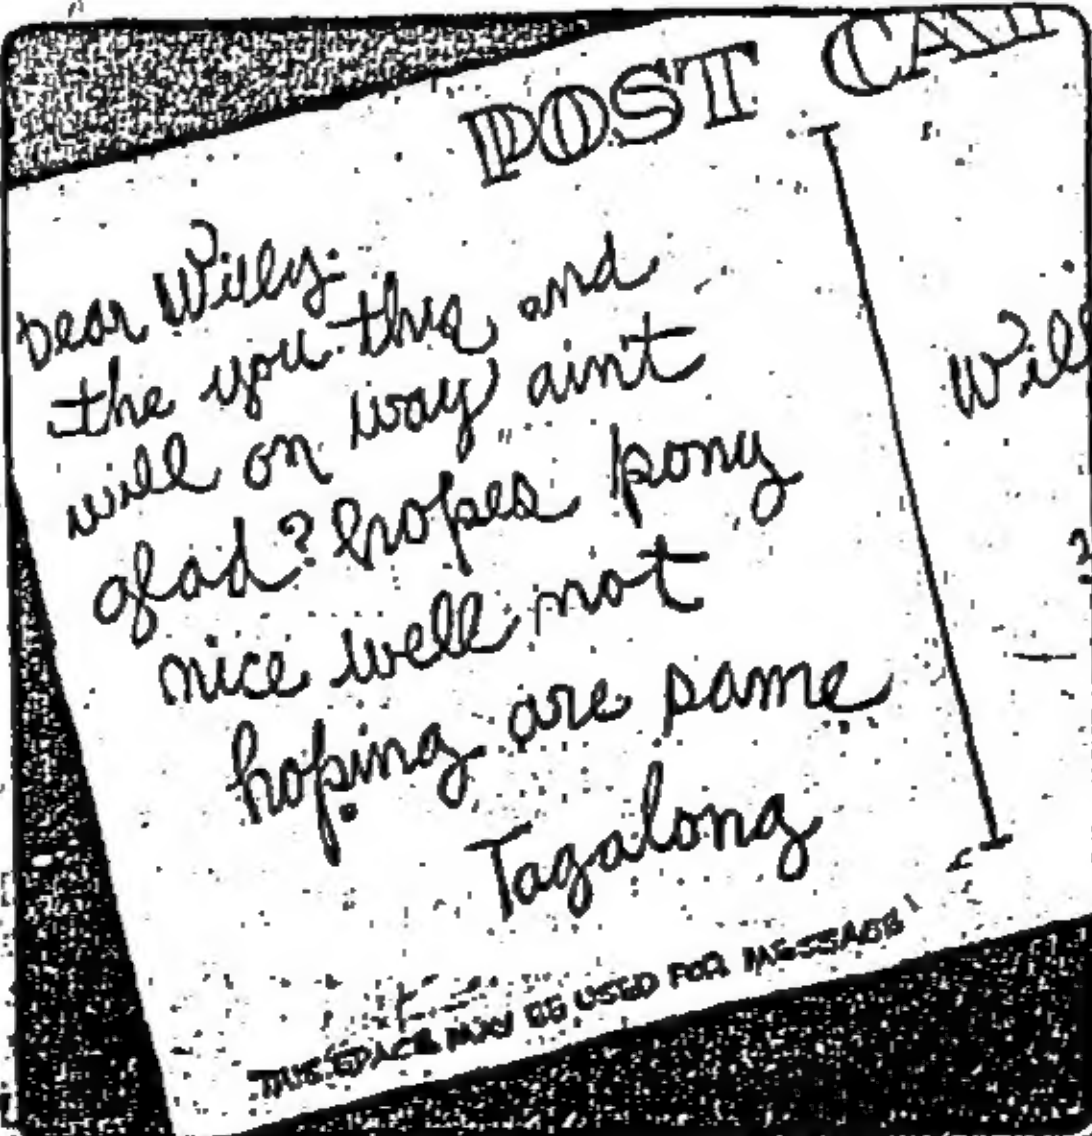 POST CAR
Dear Willy:
the you this and
will on way ain't
glad? hopes pony
nice well not
hoping are same
Tagalong
THIS SPACE MAY BE USED FOR MESSAGE
Wil